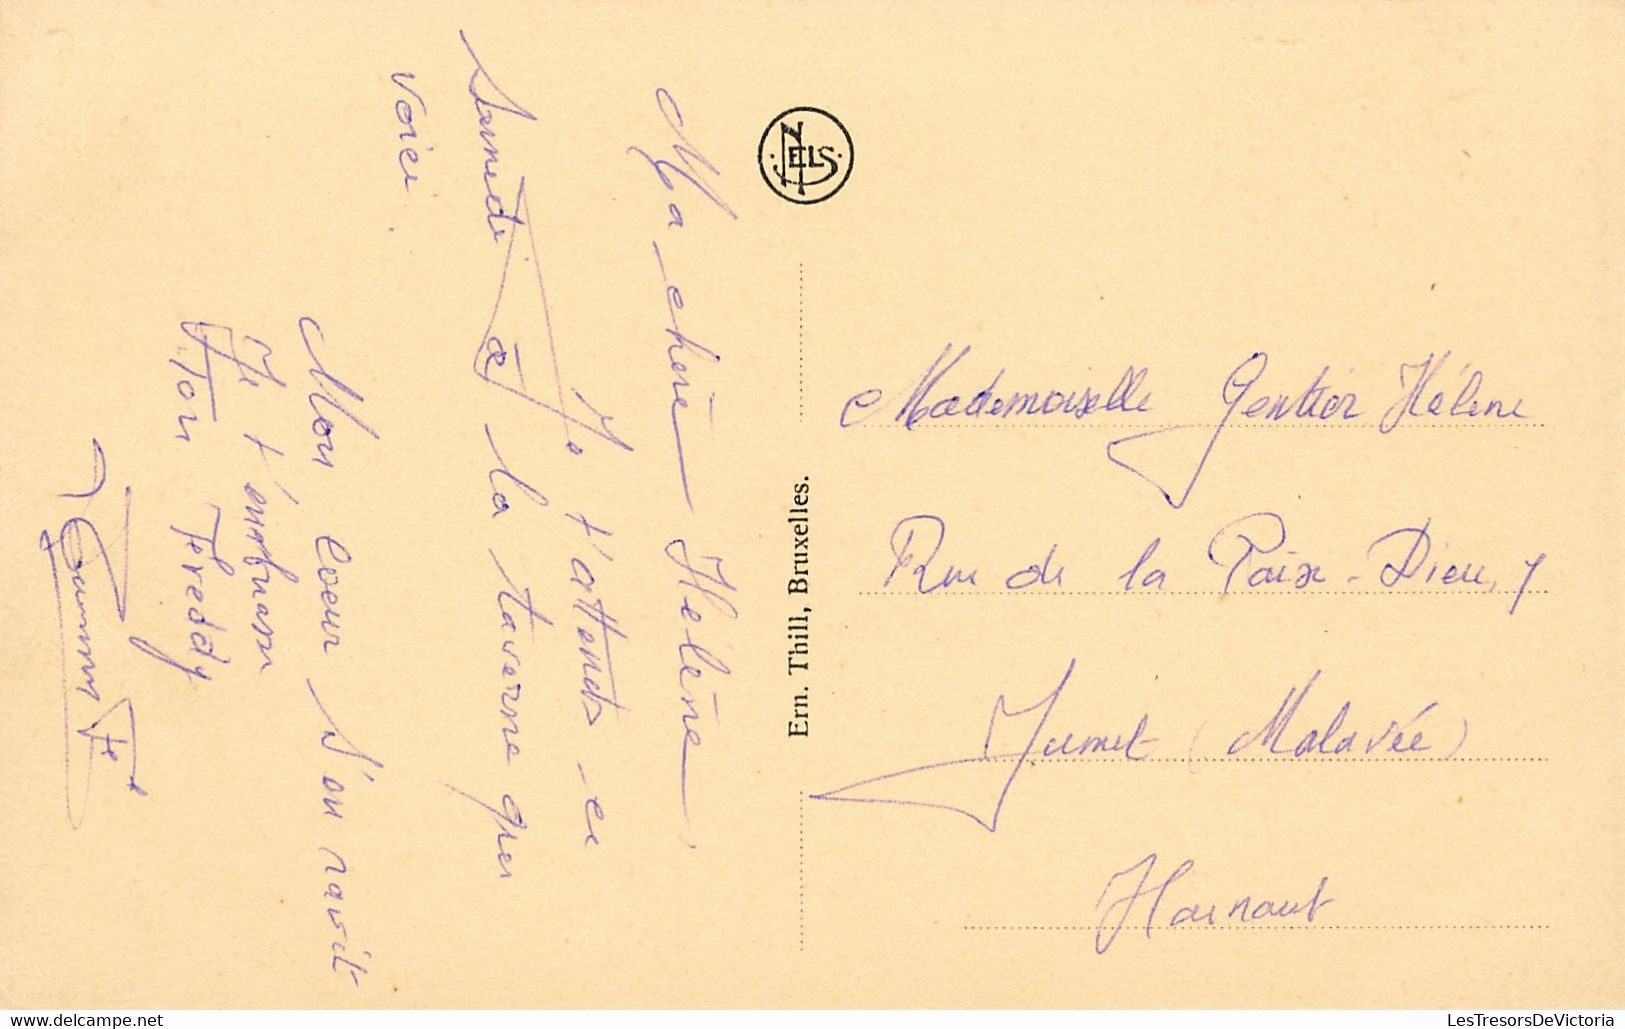 Ma chère Hélène,
Je t'attends ce
samedi à la taverne que
voici.
Mon coeur s'en ravit
Je t'embrasse
Ton Freddy
NELS
Ern. Thill, Bruxelles.
Mademoiselle Gentier Hélène
Rue de la Paix-Dieu, 7
Jumet (Malavée)
Hainaut
LesTresorsDeVictoria
www.delcampe.net